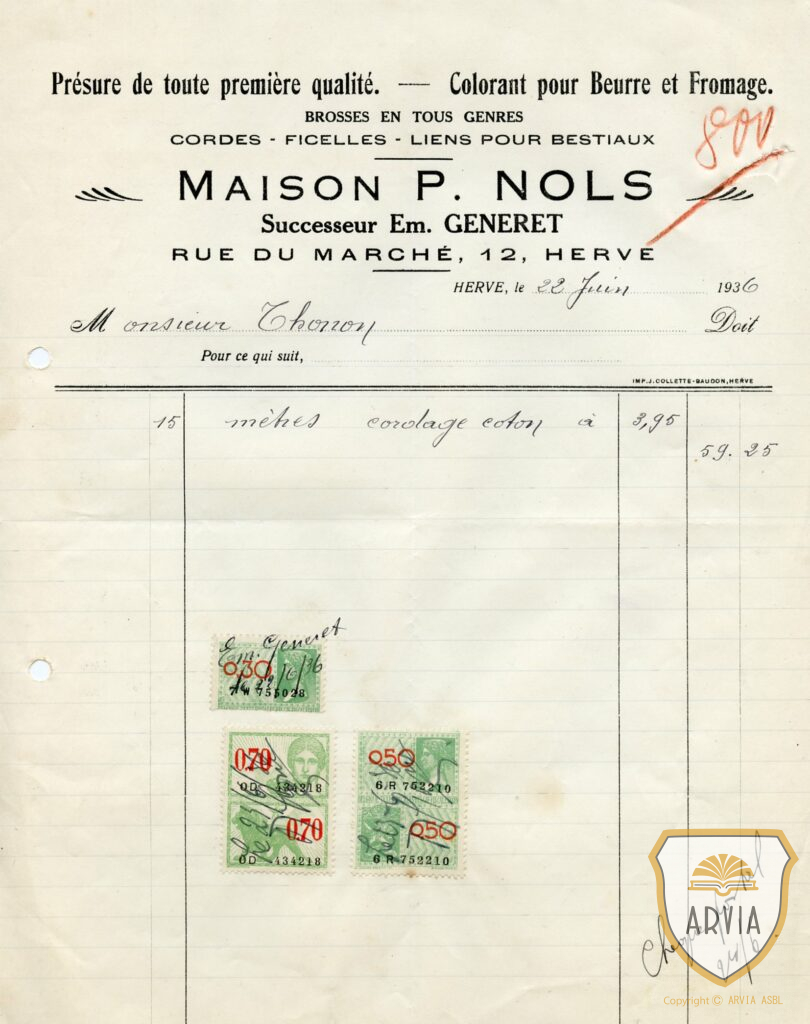 Présure de toute première qualité. — Colorant pour Beurre et Fromage.
BROSSES EN TOUS GENRES
CORDES - FICELLES - LIENS POUR BESTIAUX
800
MAISON P. NOLS
Successeur Em. GENERET
RUE DU MARCHÉ, 12, HERVE
HERVE, le 22 Juin 1936
Monsieur Thonon Doit
Pour ce qui suit,
IMP. J. COLLETTE-BAUDON, HERVE
15 mètres cordage coton à 3,95
59.25
Em. Generet
0,30
le 22/6/36
7 W 755028
0,70
OD 434218
0,70
OD 434218
0,50
6 R 752210
0,50
6 R 752210
ARVIA
Copyright © ARVIA ASBL